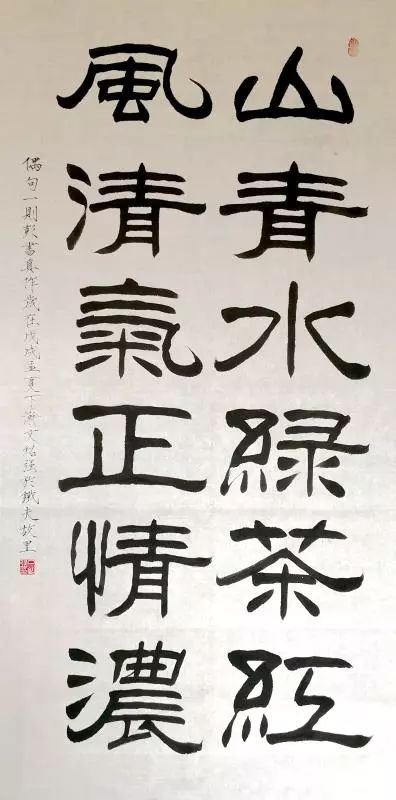 山青水緑茶紅
風清氣正情濃
偶句一則彭書真作歲在戊戌孟夏下浣文枯强於鐵夫故里